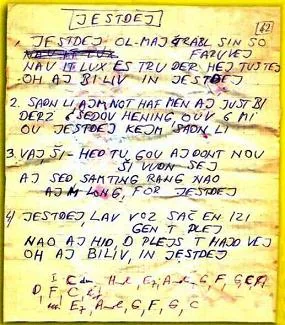 JESTDEJ
62
1. JESTDEJ OL-MAJ TRABL SIN SO
FARUVEJ
NAU IT LUX ES TRU DER HEJ TU STEJ
OH AJ BILIV IN JESTDEJ
2. SADN LI, AJM NOT HAF MEN AJ JUST BI
DERZ E ŠEDOU HENING OUV E MI
OU JESTDEJ KEJM SADN LI
3. VAJ ŠI - HED TU, GOU AJ DONT NOU
ŠI VUDN SEJ
AJ SED SAMTING RANG NAO
AJ M LONG, FOR JESTDEJ
4) JESTDEJ, LAV VOZ SAČ EN IZI
GEN T PLEJ
NAO AJ HID, O PLEJS T HAJD VEJ
OH AJ BILIV, IN JESTDEJ
G, F, G
F, C
A, G, F, G, C